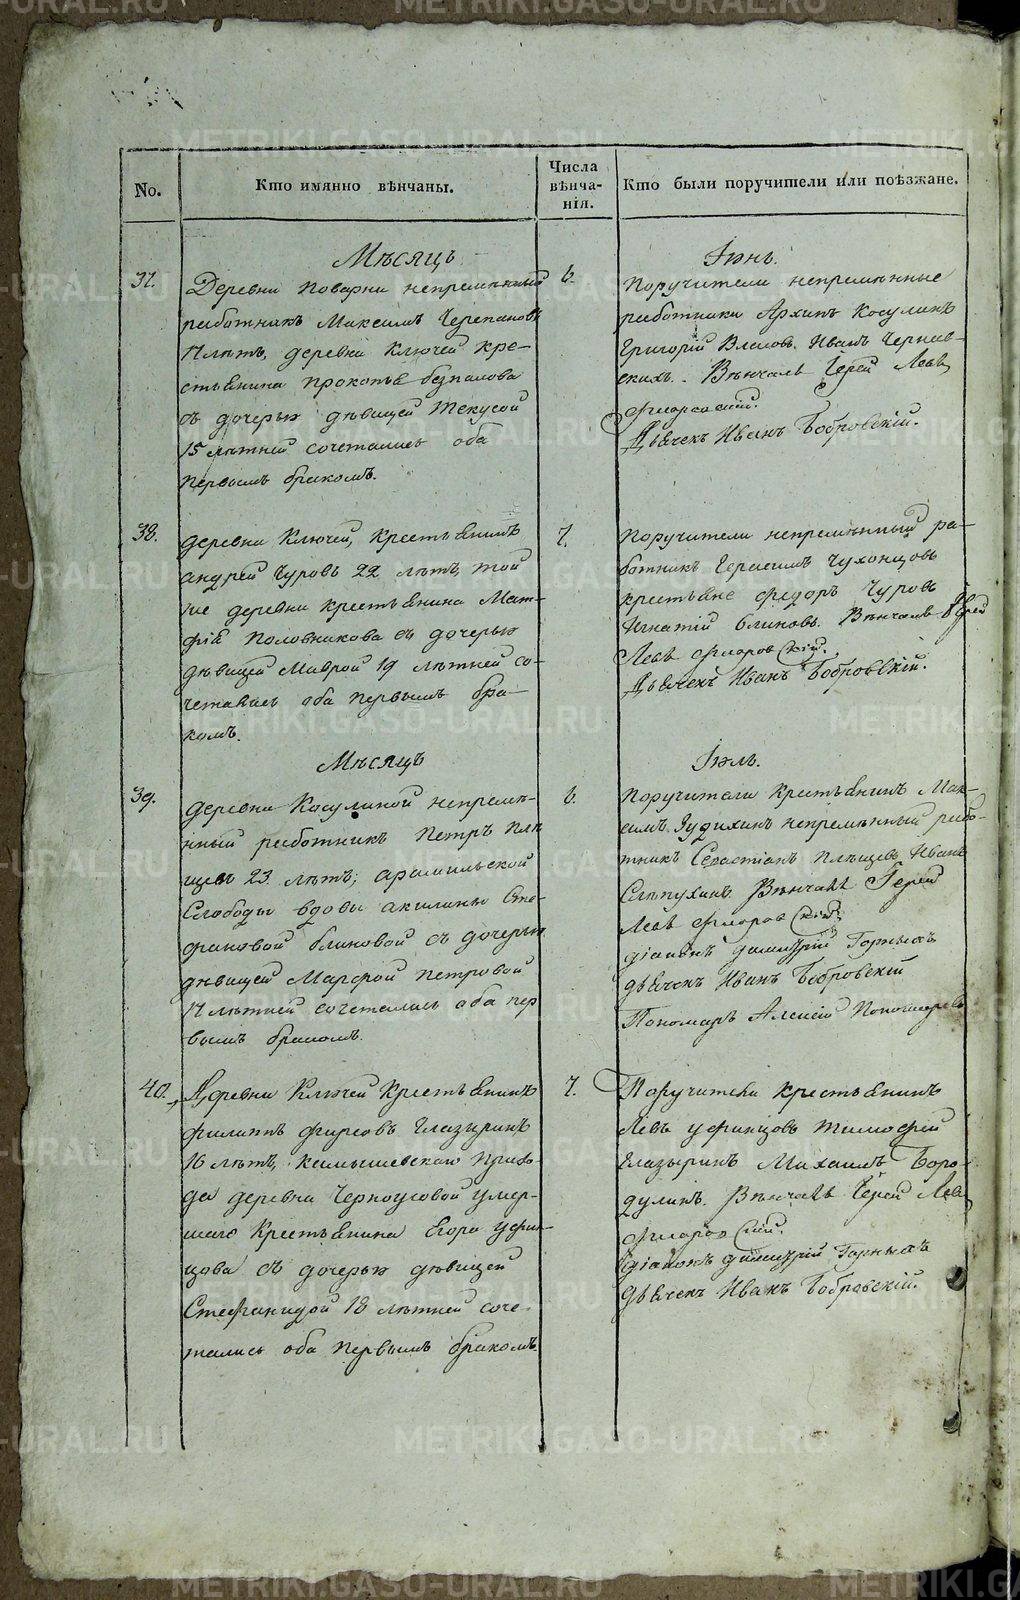 No.
Кто имянно вѣнчаны.
Числа
вѣнча-
нія.
Кто были поручители или поѣзжане.
Мѣсяцъ
Іюнь.
37.
Деревни Поварни непремѣнный
работникъ Максимъ Черепановъ
17 лѣтъ, деревни Ключей кре-
стьянина Прокопья Безпалова
съ дочерью дѣвицей Текусой
15 лѣтней сочетались оба
первымъ бракомъ.
6.
Поручители непремѣнные
работники Архипъ Косулинъ
Григорій Власовъ Иванъ Черняв-
скихъ. Вѣнчалъ Іерей Левъ
Флоровскій.
Дьячекъ Иванъ Бобровскій.
38.
деревни Ключей, крестьянинъ
Андрей Чуровъ 22 лѣтъ, той
же деревни крестьянина Мат-
фія Половникова съ дочерью
дѣвицей Маврой 19 лѣтней со-
четались оба первымъ бра-
комъ.
7.
Поручители непремѣнный ра-
ботникъ Герасимъ Чухонцовъ
крестьяне Федоръ Чуровъ
Игнатій Блиновъ. Вѣнчалъ Іерей
Левъ Флоровскій.
Дьячекъ Иванъ Бобровскій.
Мѣсяцъ
Іюль.
39.
деревни Косулиной непремѣ-
нный работникъ Петръ Плѣ
щевъ 23 лѣтъ; Арамильской
Слободы вдовы Акилины Сте-
фановой Блиновой съ дочерью
дѣвицей Марфой Петровой
17 лѣтней сочетались оба пер
вымъ бракомъ.
6.
Поручители крестьянинъ Мак-
симъ Зудихинъ непремѣнный рабо-
тникъ Севастіанъ Плѣщевъ Иванъ
Слѣпухинъ. Вѣнчалъ Іерей
Левъ Флоровскій,
діаконъ Димитрій Горныхъ
дьячекъ Иванъ Бобровскій
Пономарь Алексій Пономаревъ
40.
Деревни Ключей Крестьянинъ
Филиппъ Фирсовъ Глазыринъ
16 лѣтъ, Камышевскаго прихо-
да деревни Черноусовой умер-
шаго Крестьянина Егора Уфин-
цова съ дочерью дѣвицей
Стефанидой 18 лѣтней соче-
тались оба первымъ бракомъ.
7.
Поручители крестьянинъ
Левъ Уфинцовъ Тимофей
Глазыринъ Михаилъ Боро-
дулинъ. Вѣнчалъ Іерей Левъ
Флоровскій.
діаконъ Димитрій Горныхъ
дьячекъ Иванъ Бобровскій.
METRIKI.GASO-URAL.RU